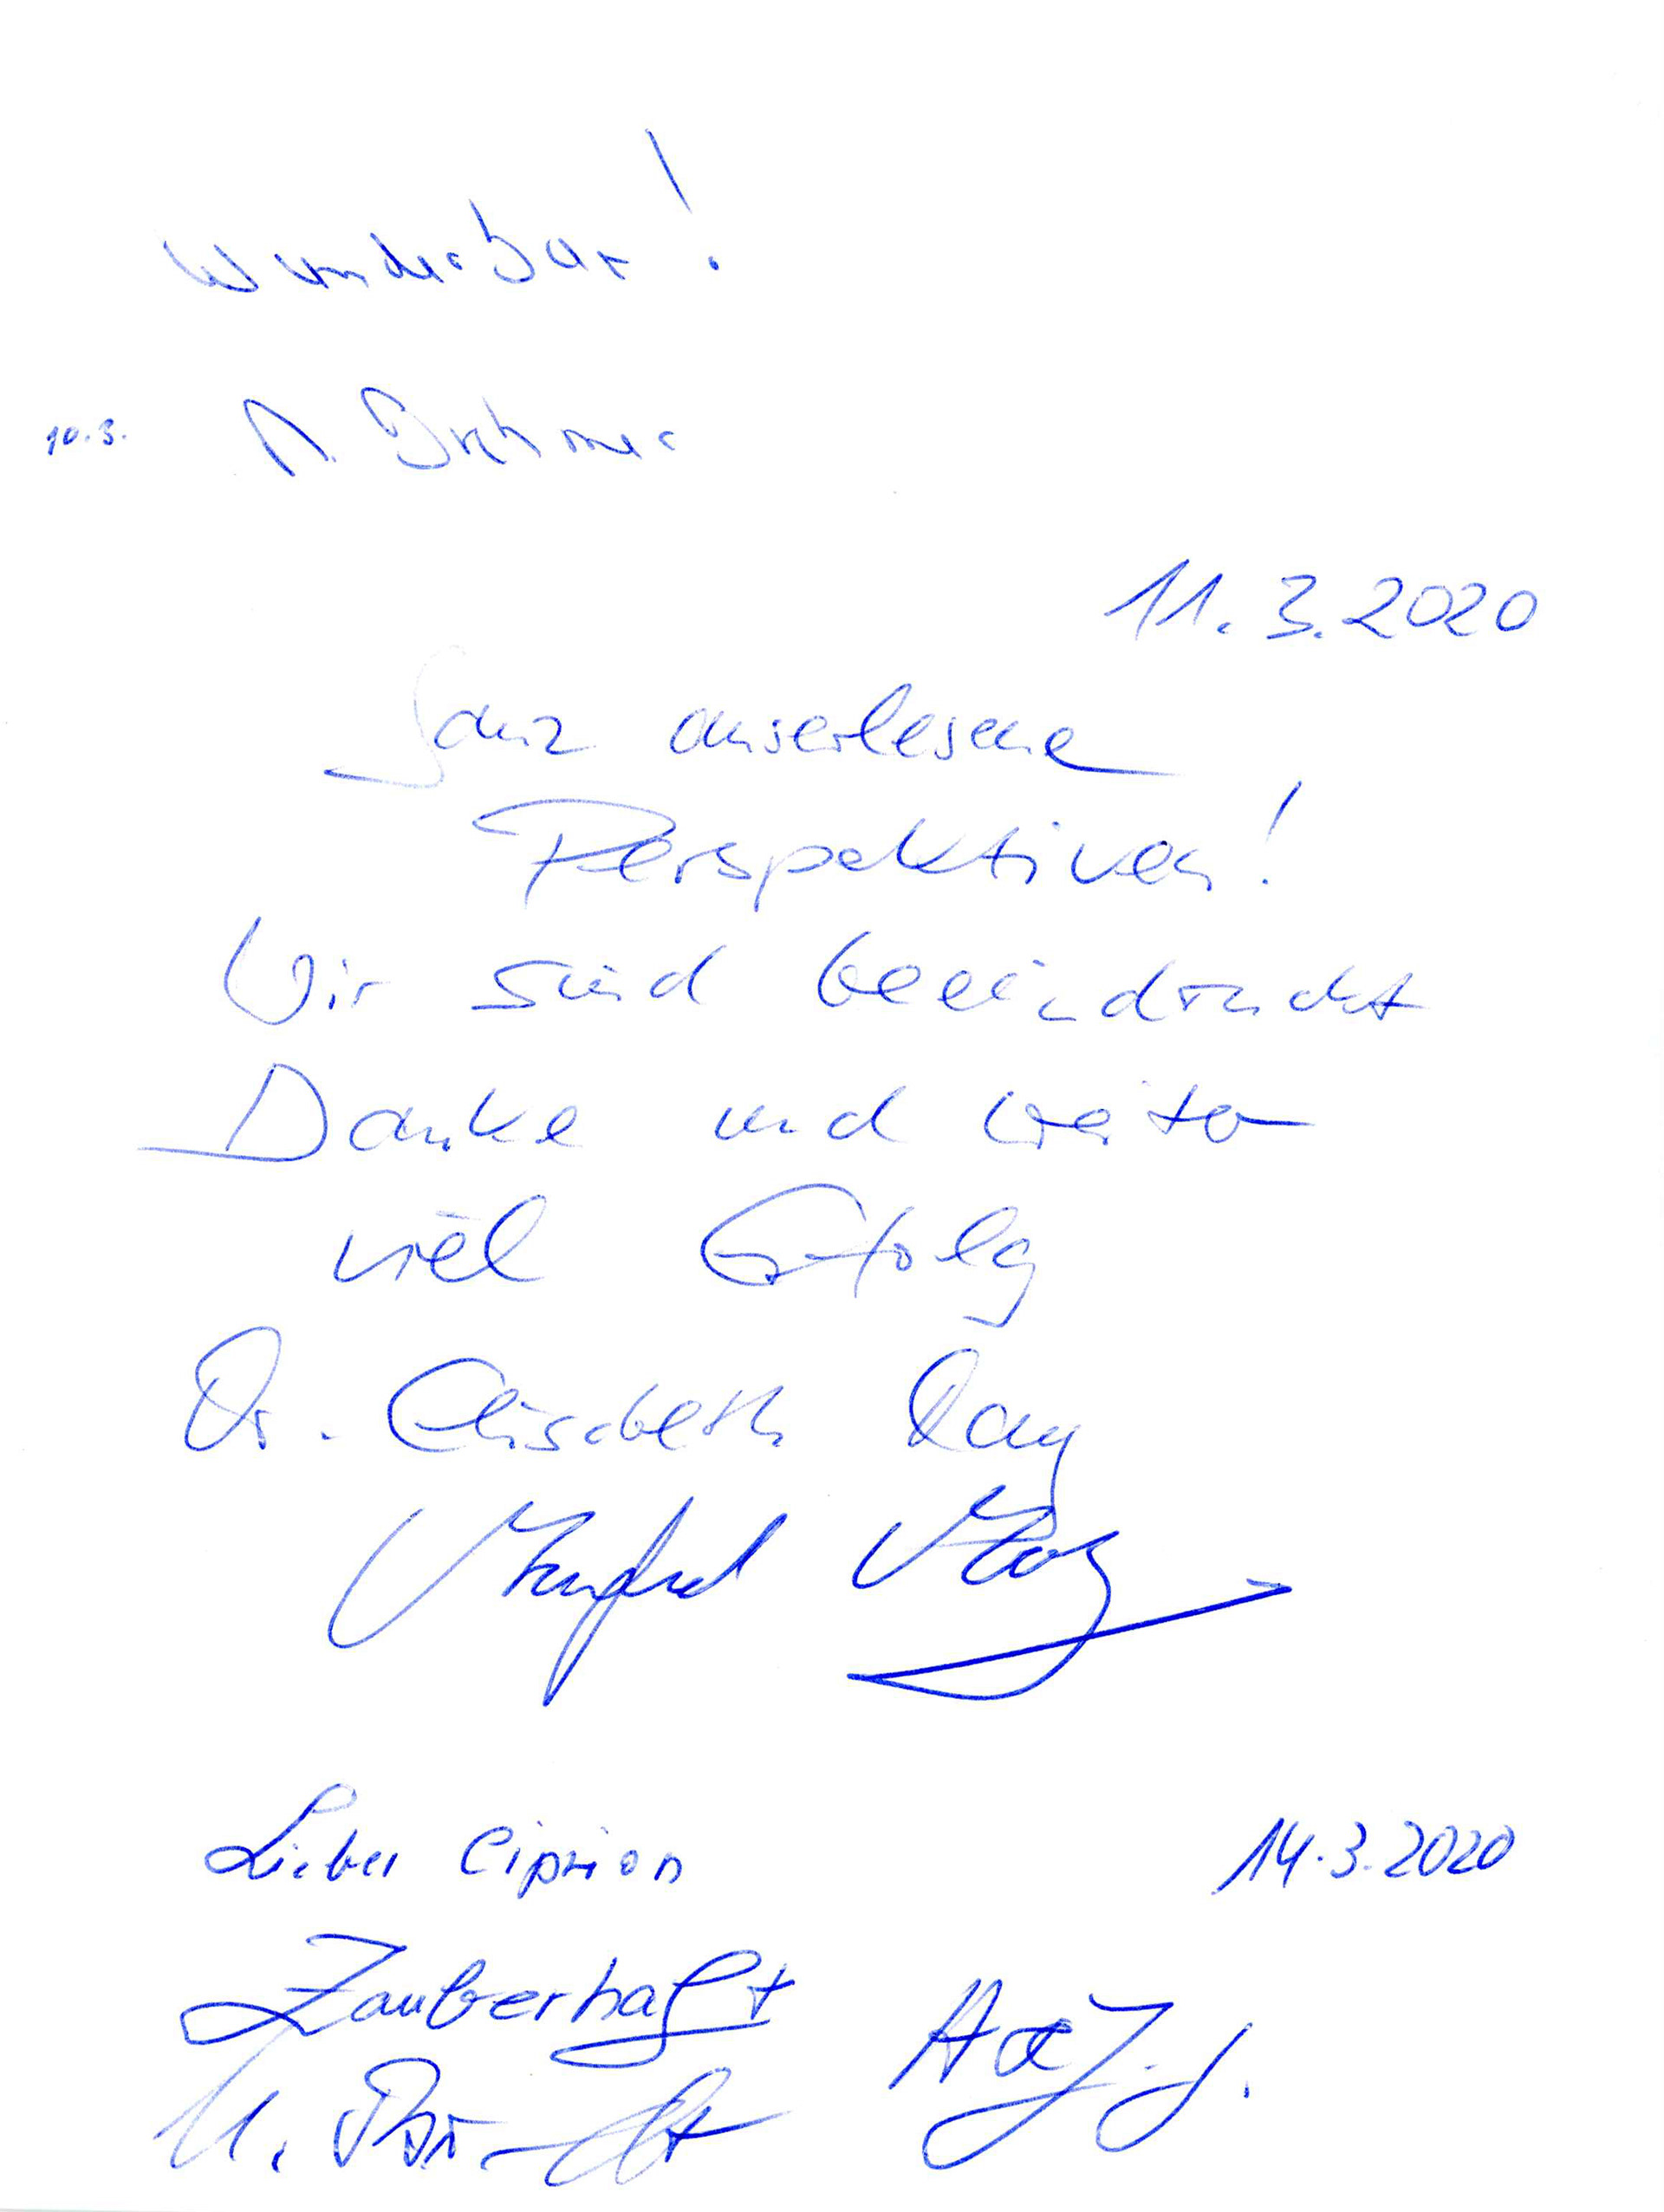 Wunderbar!
10.3.
11.3.2020
Ganz auserlesene
Perspektiven!
Wir sind beeindruckt
Danke und weiter
viel Erfolg
Dr. Elisabeth
Manfred
Lieber Ciprion 14.3.2020
Zauberhaft